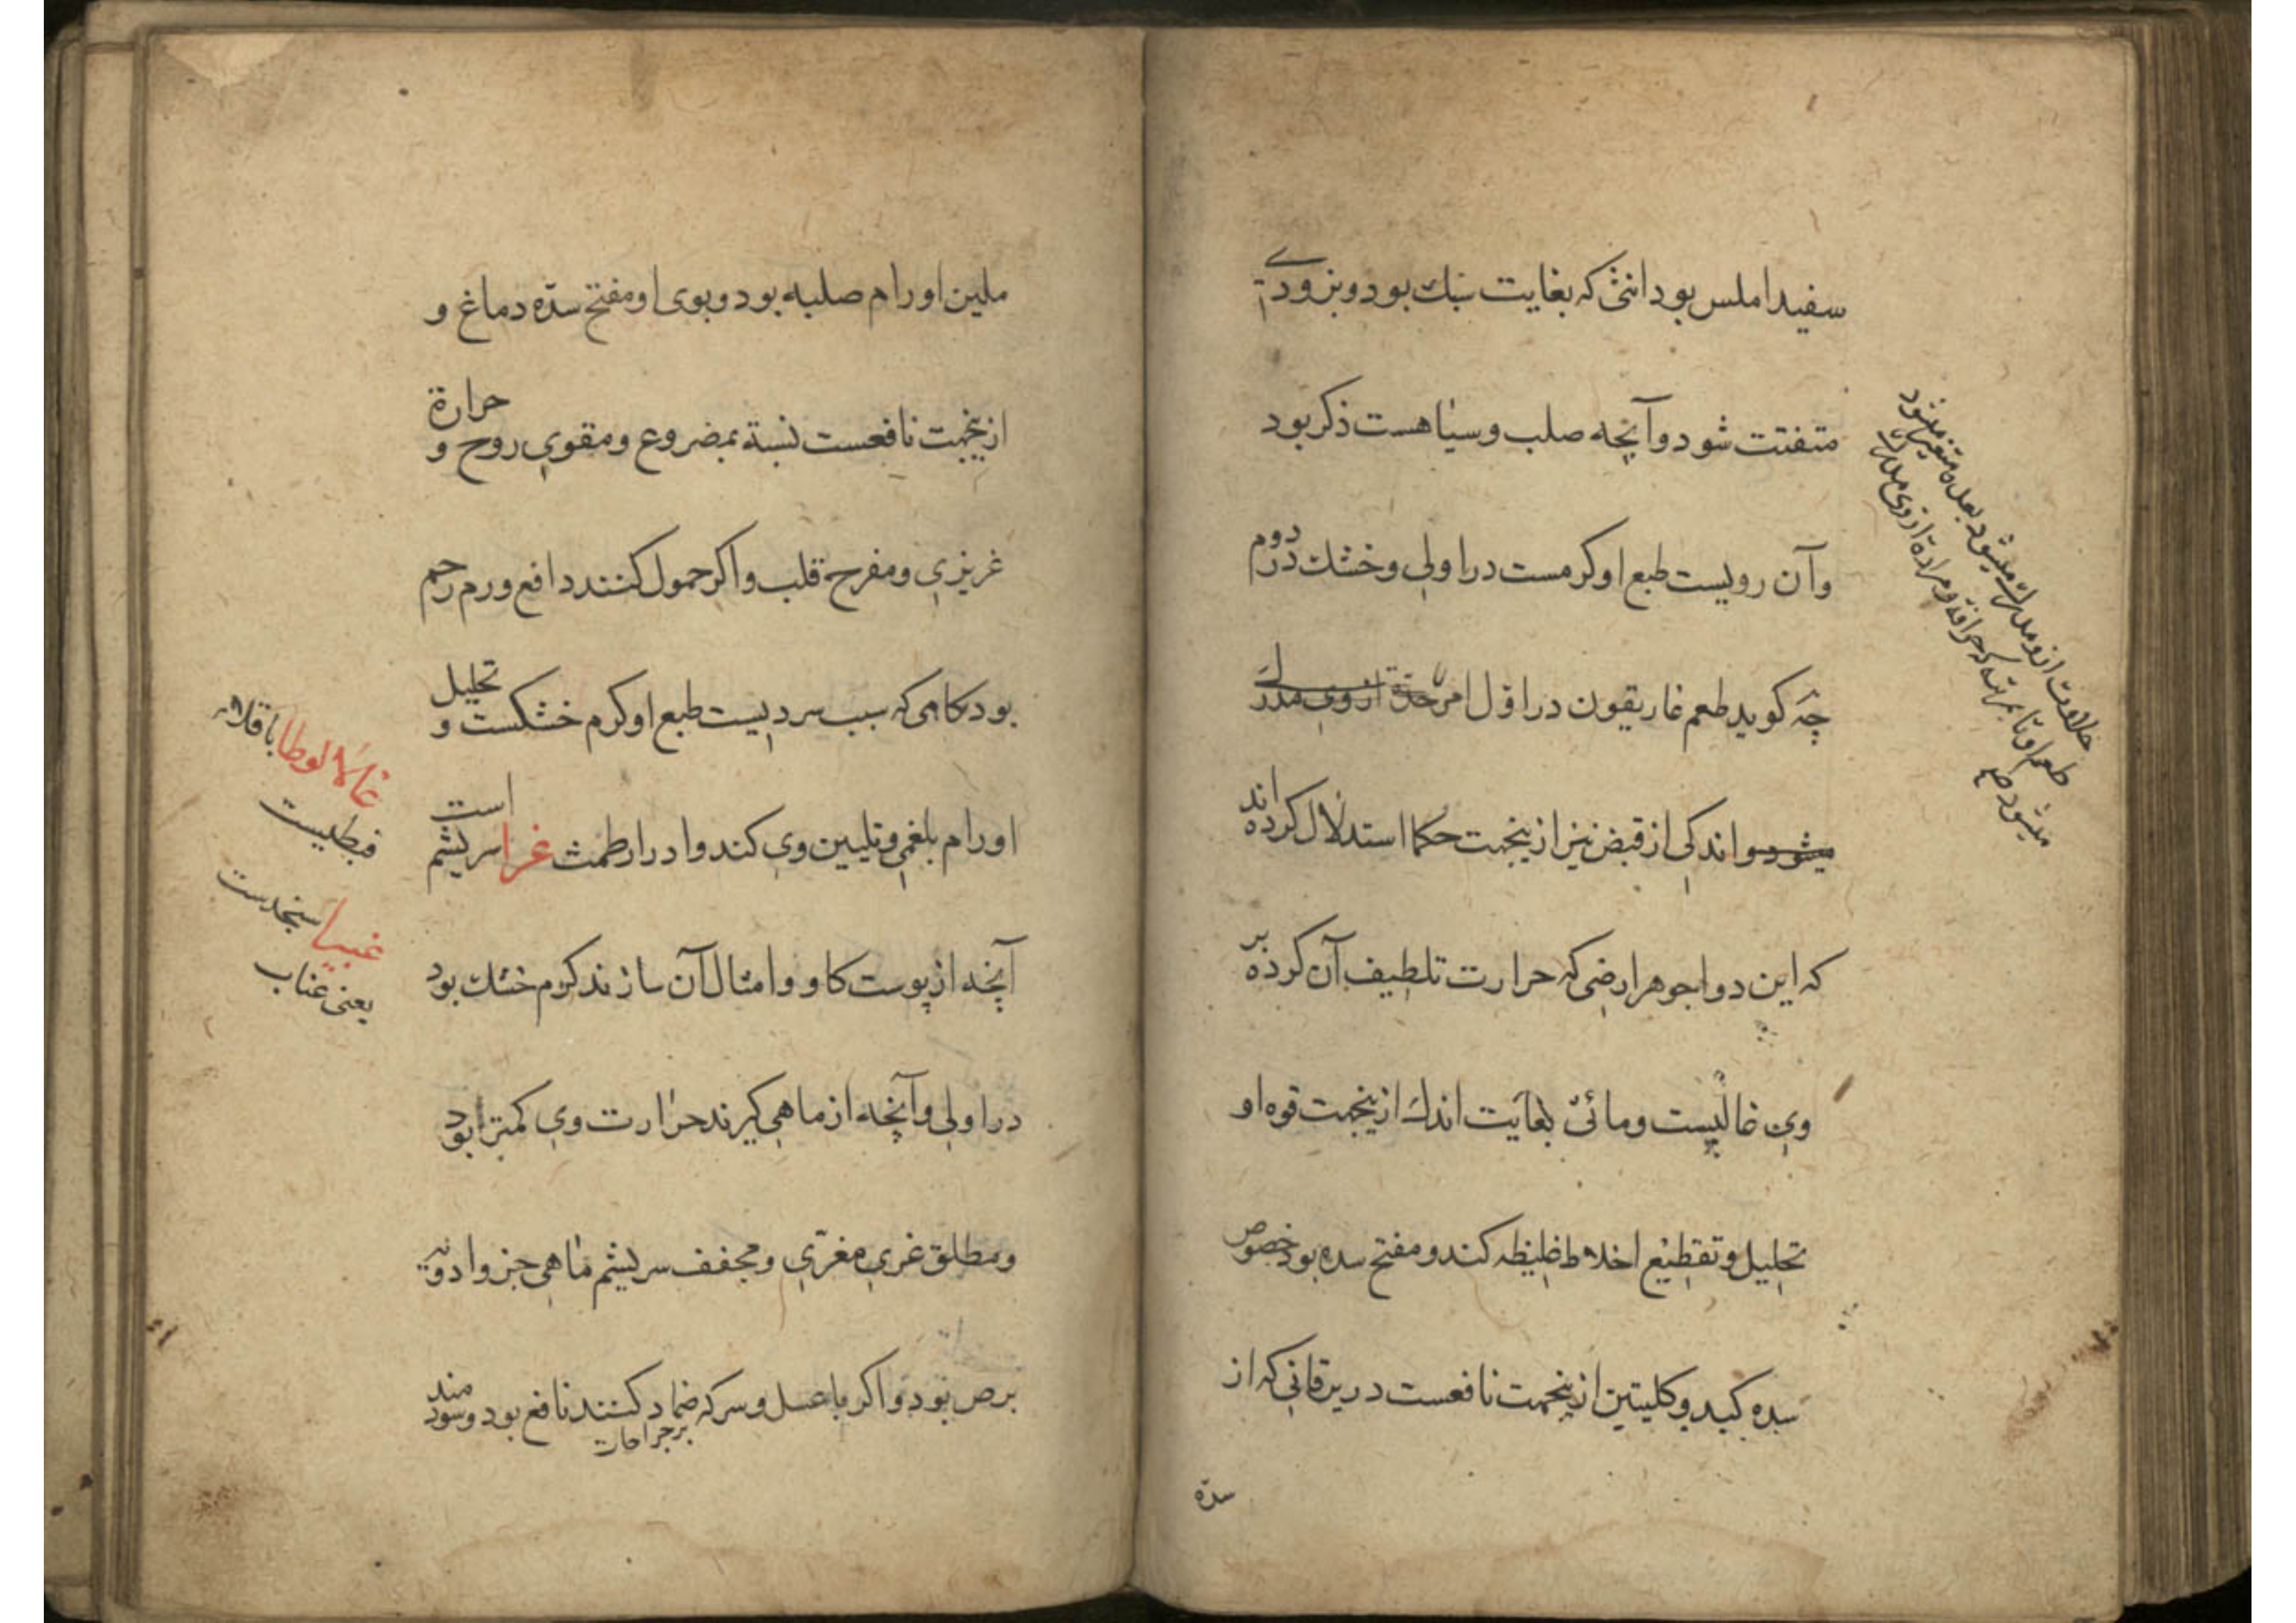 سفید املس بود انثی که بغایت سبك بود و بزودی
متفتت شود و آنچه صلب و سیاهست ذکر بود
و آن رویست طبع او کرمست در اولی و خشك در دوم
چه کوید طعم غاریقون در اول امر از وی مدرك
میشود و اندکی از قبض نیز ازینجهت حکما استدلال کرده اند
که این دوا جوهر ارضی که حرارت تلطیف آن کرده بر
وی غالبیست و مائی بغایت اندك ازینجهت قوه او
تحلیل و تقطیع اخلاط غلیظه کند و مفتح سده بود خصوص
سده کبد و کلیتین ازینجهت نافعست در یرقانی که از
سده
حلاوت ازو مدرك میشود بعده متغیر میشود
طعم او تا بمرتبه که حرافة و مرارة از وی مدرك
میشود صح
ملین اورام صلبه بود و بوی او مفتح سدّه دماغ و
ازینجهت نافعست نسبة بمضروع و مقوی روح و حرارة
غریزی و مفرح قلب و اکر حمول کنند دافع ورم رحم
بود کامی که سبب سردیست طبع او کرم خشکست و تحلیل
اورام بلغمی و تلیین وی کند و ادرار طمث غرا سریشم است
آنچه از پوست کاو و امثال آن سازند کرم خشك بود
در اولی و آنچه از ماهی کیرند حرارت وی کمتر بود
و مطلق غری مغرّی و مجفف سریشم ماهی جزو ادویه
برص بود و اکر با عسل و سرکه ضماد کنند نافع بود و سودمند
بر جراحات
غالالوطا باقلاء
قبطیست
غبیرا سنجدست
یعنی عناب